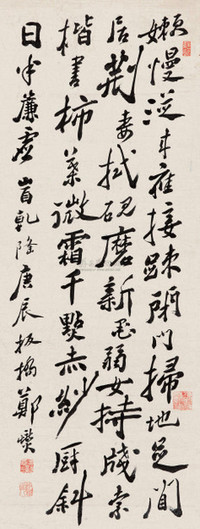 嬾慢從来應接踈閉門掃地足閒
居荆妻拭硯磨新墨弱女持牋索
楷書柿葉微霜千點赤紗厨斜
日半簾虚 乾隆庚辰板橋鄭燮